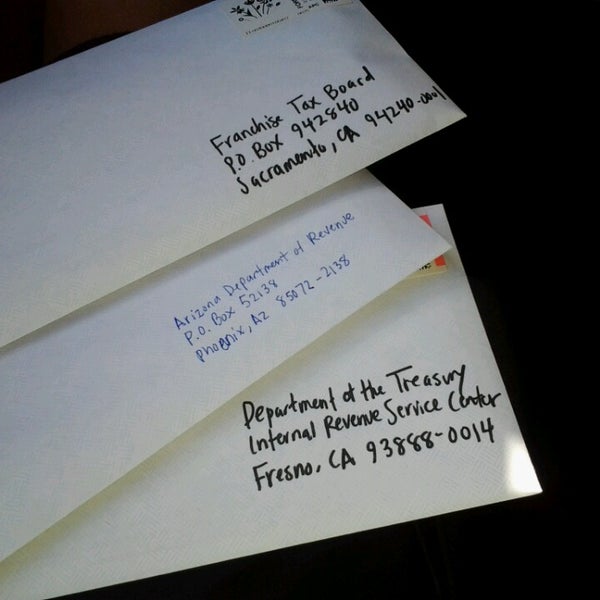 Franchise Tax Board
P.O. Box 942840
Sacramento, CA 94240-0001
Arizona Department of Revenue
P.O. Box 52138
Phoenix, AZ 85072-2138
Department of the Treasury
Internal Revenue Service Center
Fresno, CA 93888-0014